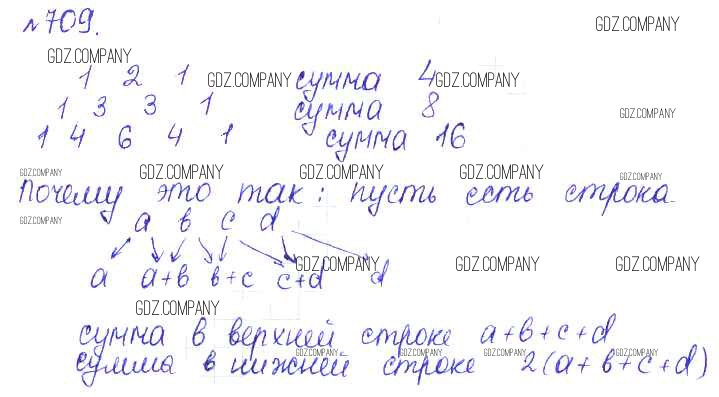 №709.
GDZ.COMPANY
GDZ.COMPANY
1 2 1 GDZ.COMPANY сумма 4 GDZ.COMPANY
1 3 3 1 сумма 8 GDZ.COMPANY
1 4 6 4 1 сумма 16
GDZ.COMPANY GDZ.COMPANY GDZ.COMPANY GDZ.COMPANY GDZ.COMPANY
Почему это так: пусть есть строка
GDZ.COMPANY
a в c d
GDZ.COMPANY GDZ.COMPANY GDZ.COMPANY
a a+в в+c c+d d
GDZ.COMPANY
сумма в верхней строке a+в+c+d
GDZ.COMPANY GDZ.COMPANY GDZ.COMPANY GDZ.COMPANY GDZ.COMPANY
сумма в нижней строке 2(a+в+c+d)